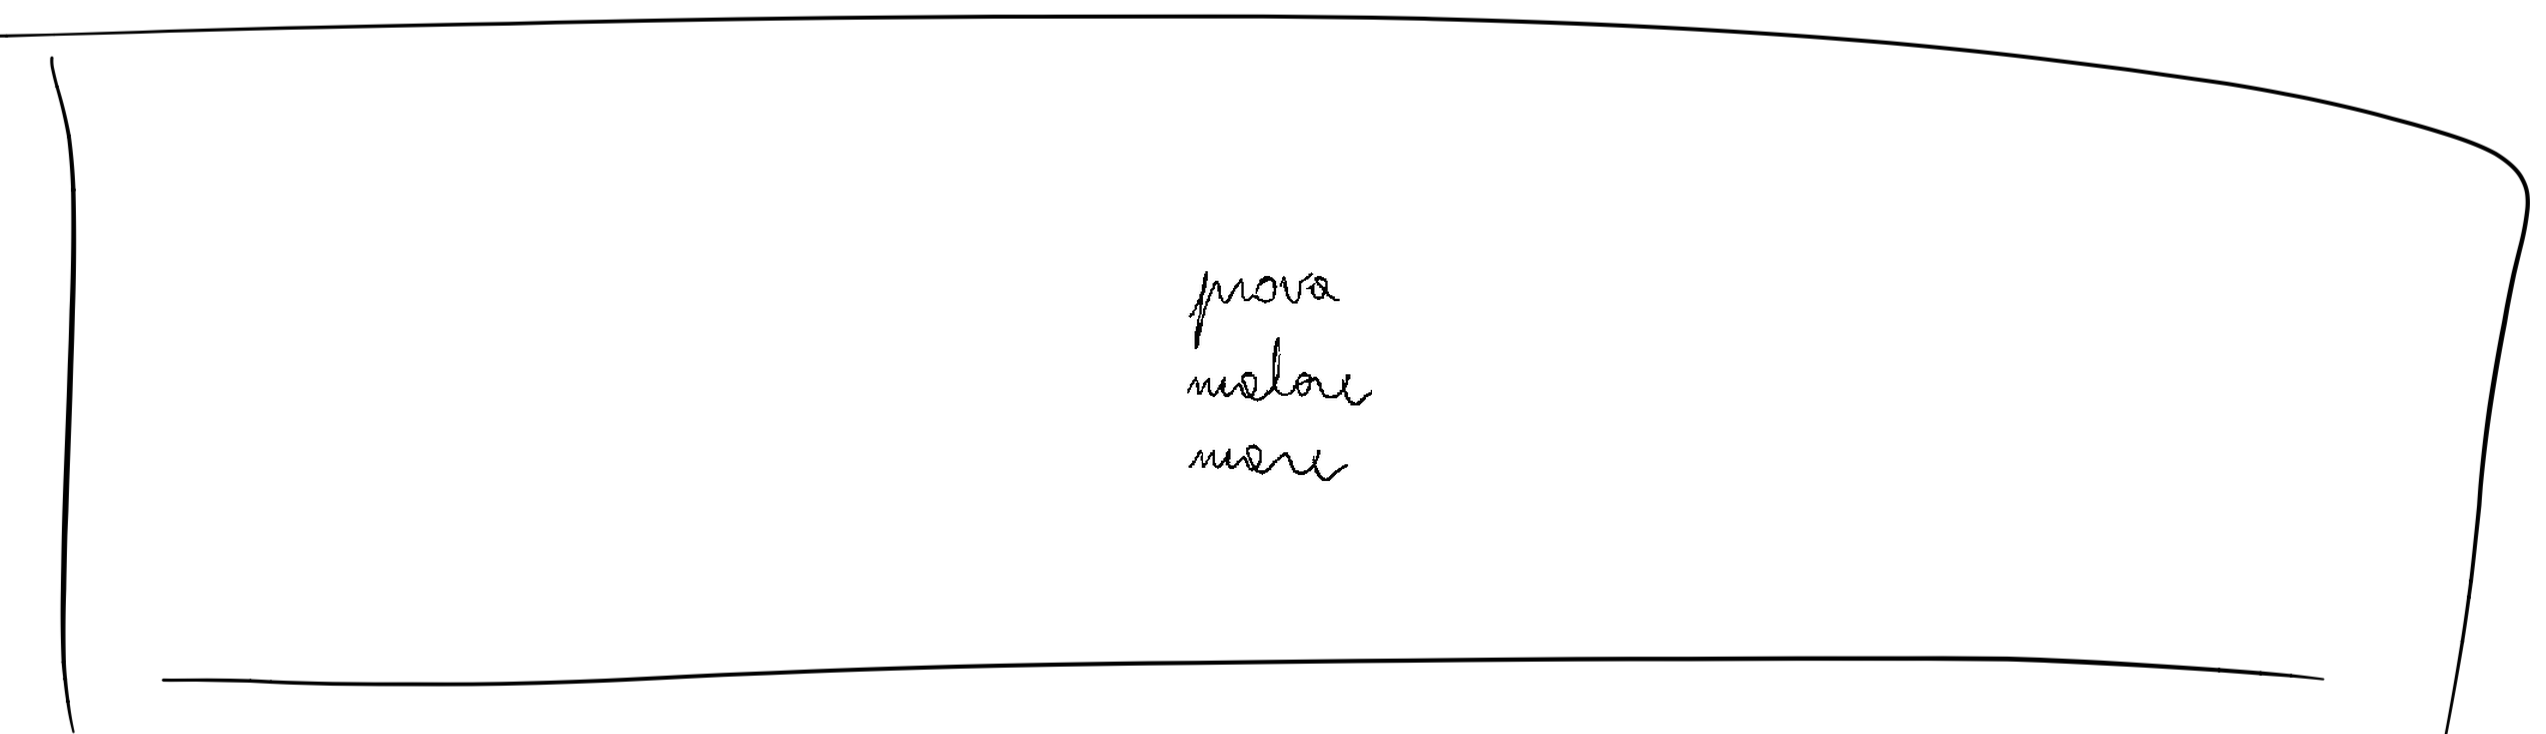 prova
malore
mare